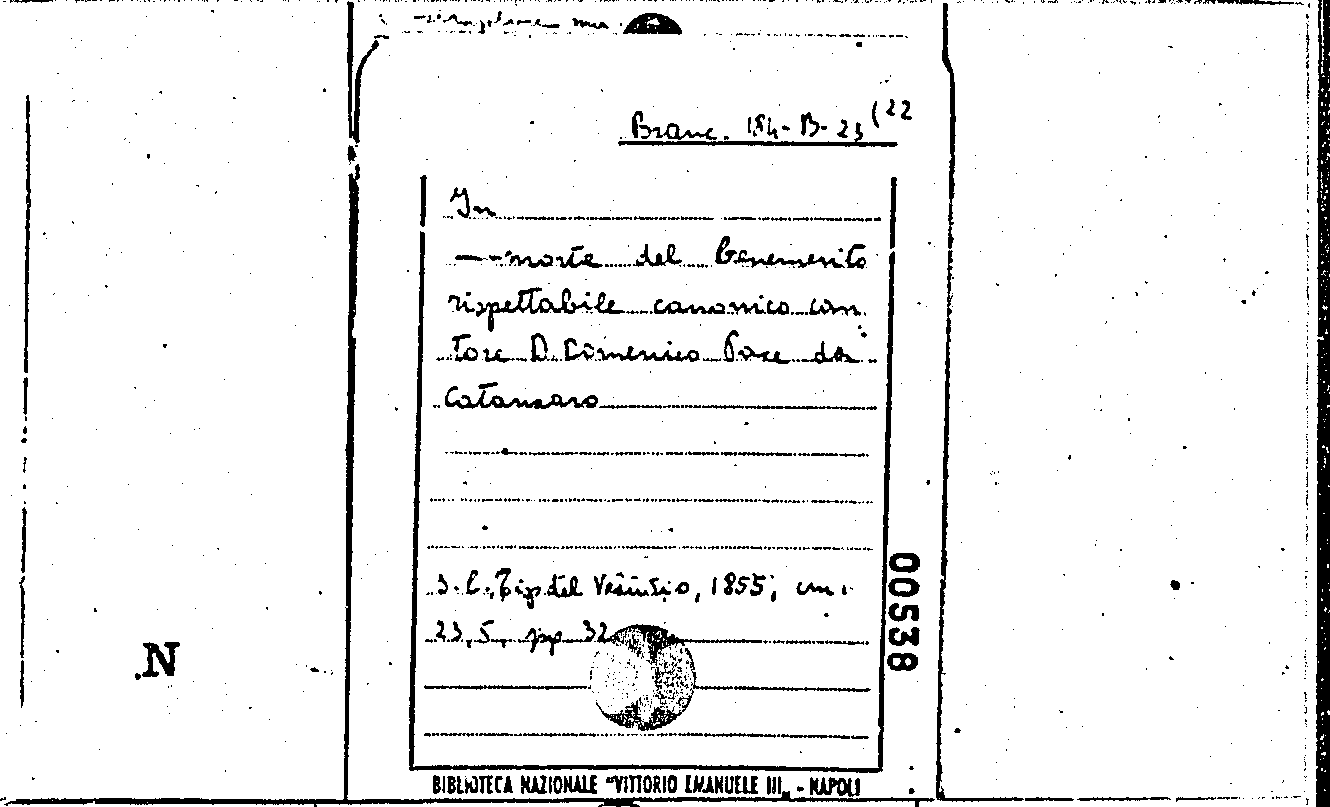 Branc. 184-B-23 (22
In
— morte del benemerito
rispettabile canonico can
tore D. Domenico Pace da
Catanzaro
S. l., Tip. del Vesuvio, 1855; cm.
23,5, pp 32
00538
N
BIBLIOTECA NAZIONALE "VITTORIO EMANUELE III„ - NAPOLI